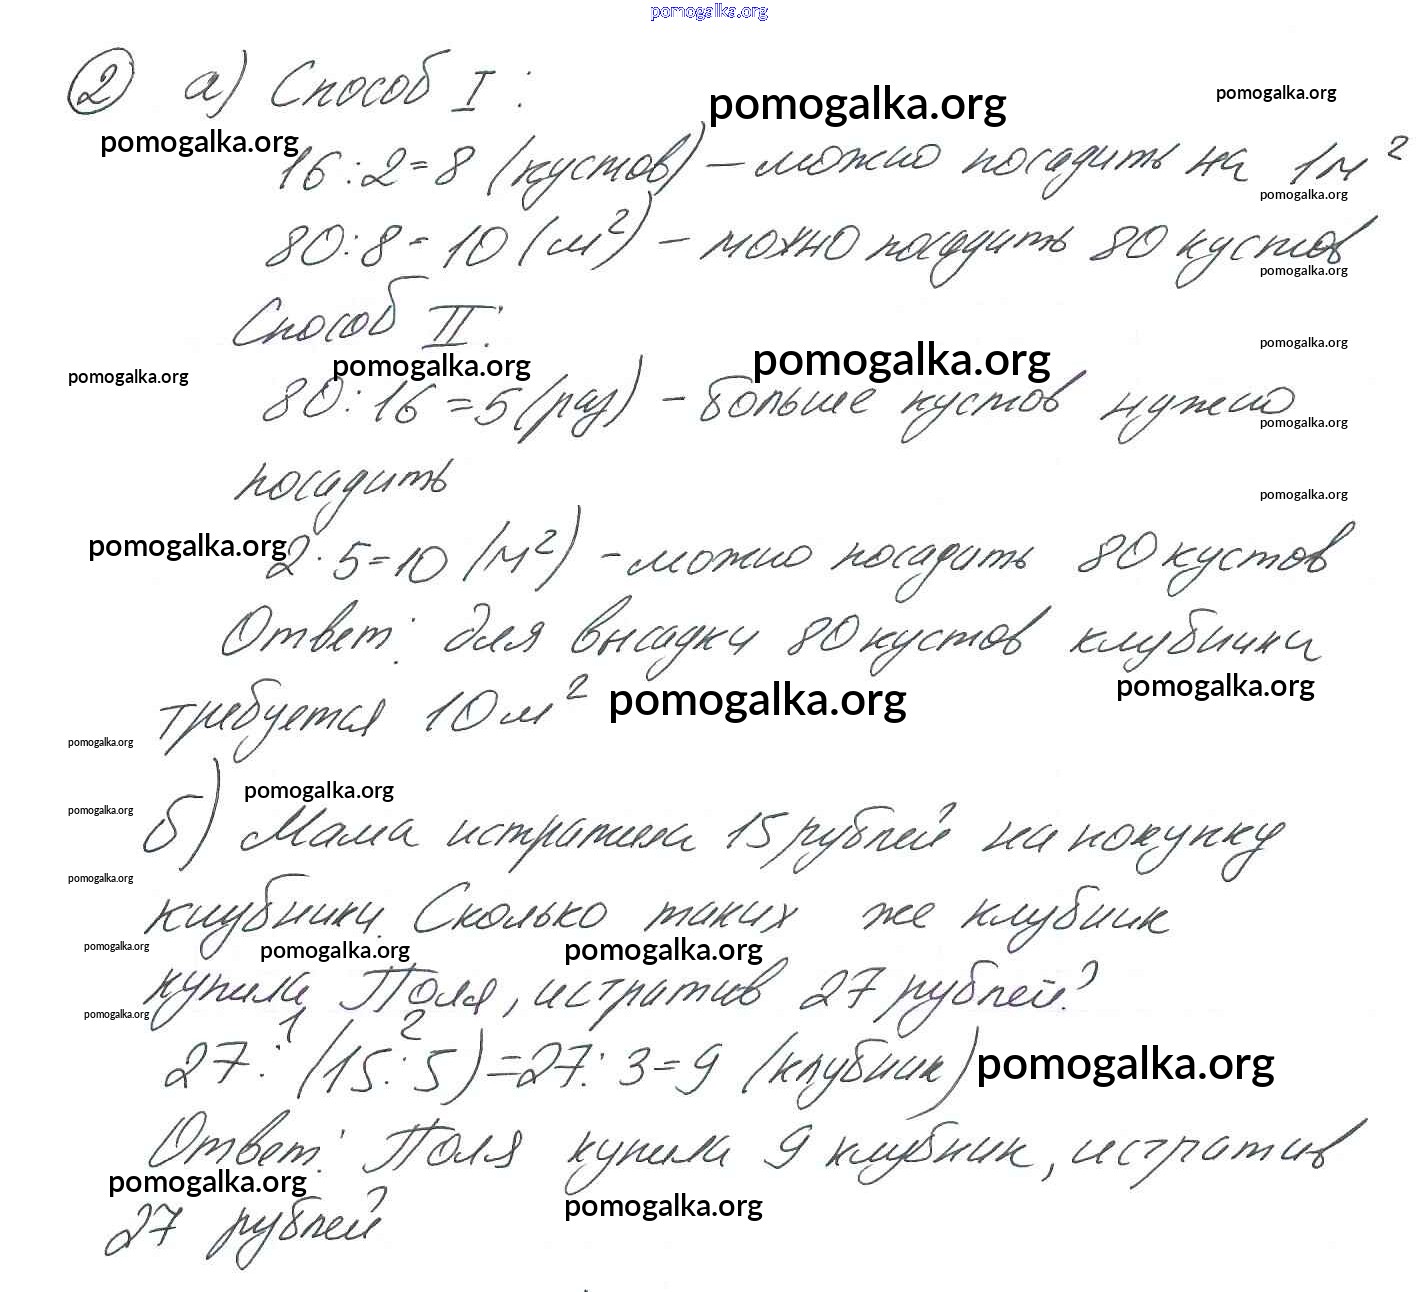 pomogalka.org
2 а) Способ I :
pomogalka.org pomogalka.org
pomogalka.org
16 : 2 = 8 (кустов) – можно посадить на 1 м²
pomogalka.org
80 : 8 = 10 (м²) – можно посадить 80 кустов
pomogalka.org
Способ II :
pomogalka.org
pomogalka.org pomogalka.org pomogalka.org
80 : 16 = 5 (раз) – больше кустов нужно
pomogalka.org
посадить
pomogalka.org
pomogalka.org
2 · 5 = 10 (м²) – можно посадить 80 кустов
Ответ: для высадки 80 кустов клубники
pomogalka.org
требуется 10 м² pomogalka.org
pomogalka.org
pomogalka.org
pomogalka.org
б) Мама истратила 15 рублей на покупку
pomogalka.org
клубники. Сколько таких же клубник
pomogalka.org pomogalka.org pomogalka.org
купила Поля, истратив 27 рублей?
pomogalka.org
1 2
27 : (15 : 5) = 27 : 3 = 9 (клубник) pomogalka.org
Ответ: Поля купила 9 клубник, истратив
pomogalka.org pomogalka.org
27 рублей